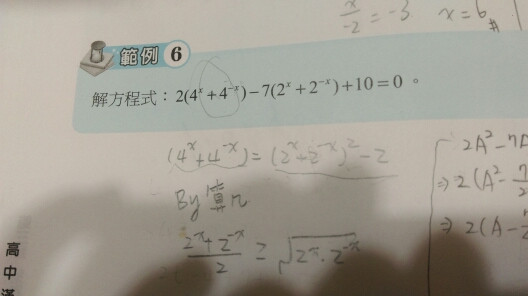 x/-2 = -3 x = 6 #
範例 6
解方程式：2(4^x+4^-x)-7(2^x+2^-x)+10=0。
(4^x+4^-x) = (2^x+2^-x)^2-2
By 算几
(2^x+2^-x)/2 ≥ √(2^x·2^-x)
2A^2-7A
⇒ 2(A^2-7/2
⇒ 2(A-
高中